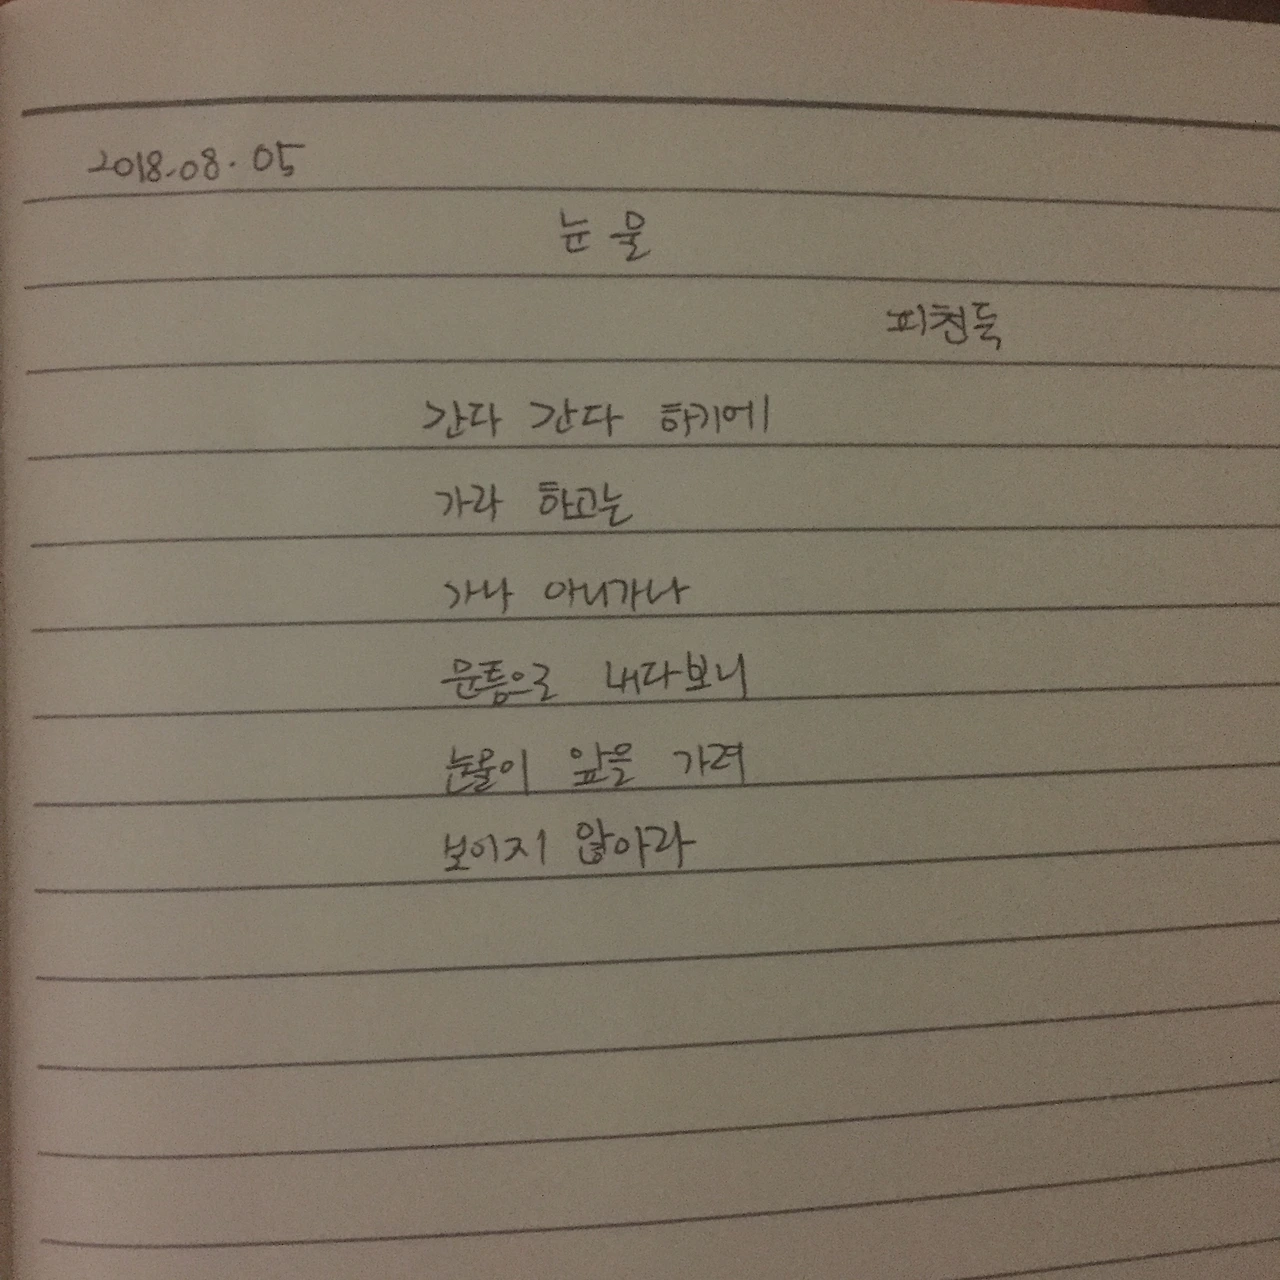 2018.08.05
눈물
피천득
간다 간다 하기에
가라 하고는
가나 아니가나
문틈으로 내다보니
눈물이 앞을 가려
보이지 않아라